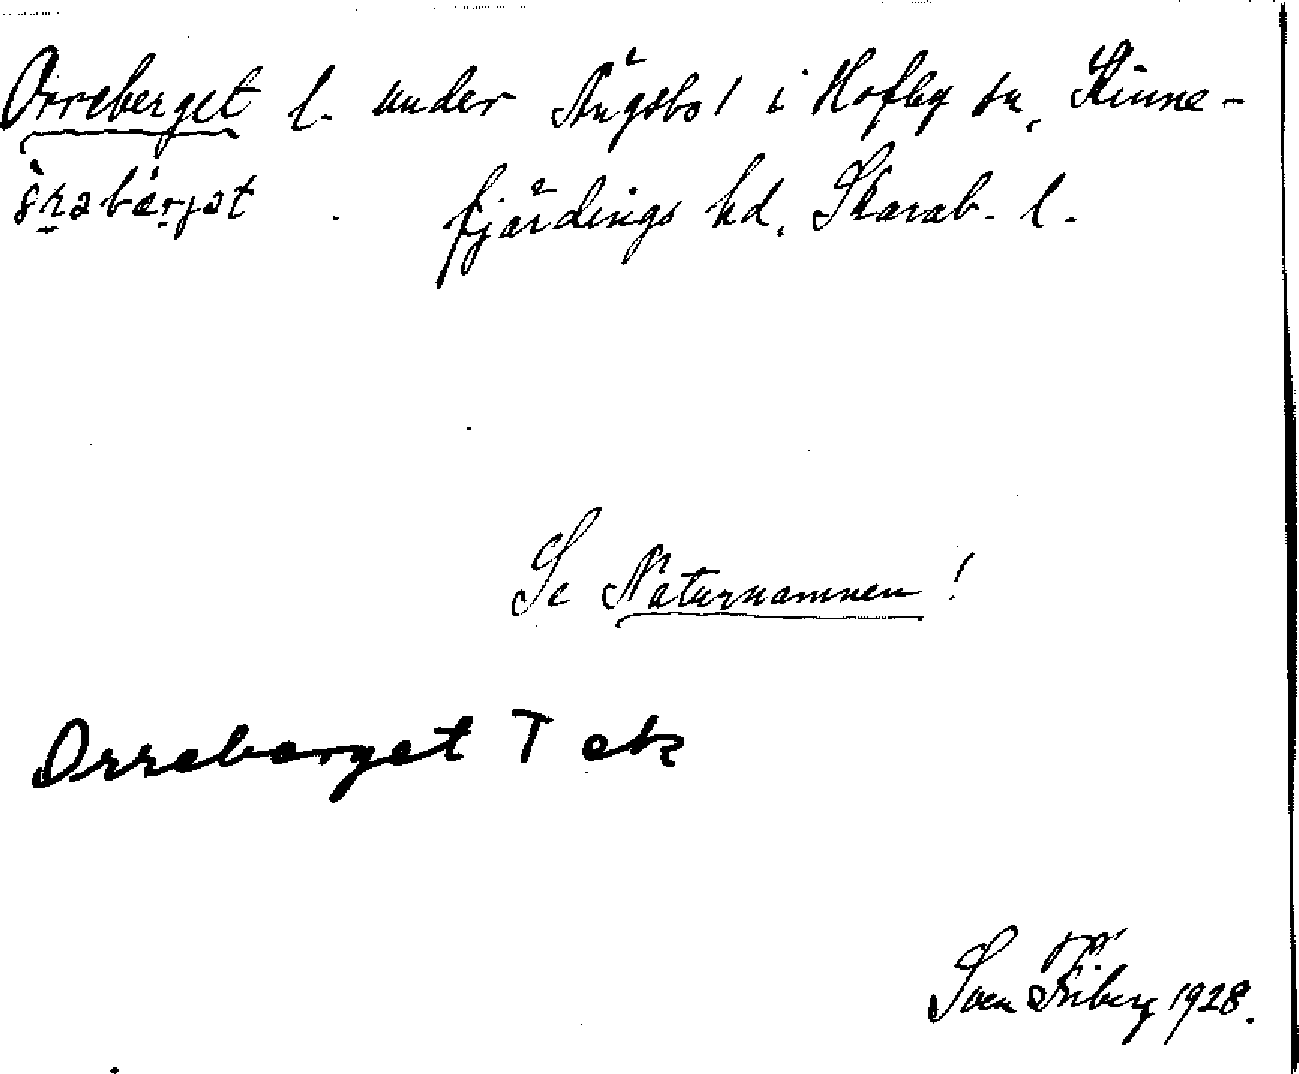 Orreberget l. under Ängsbo 1 i Kofley sn, Kinne-
fjärdings hd, Skarab. l.
Se Naturnamnen!
Orreberget T ek
Sven Friberg 1928.